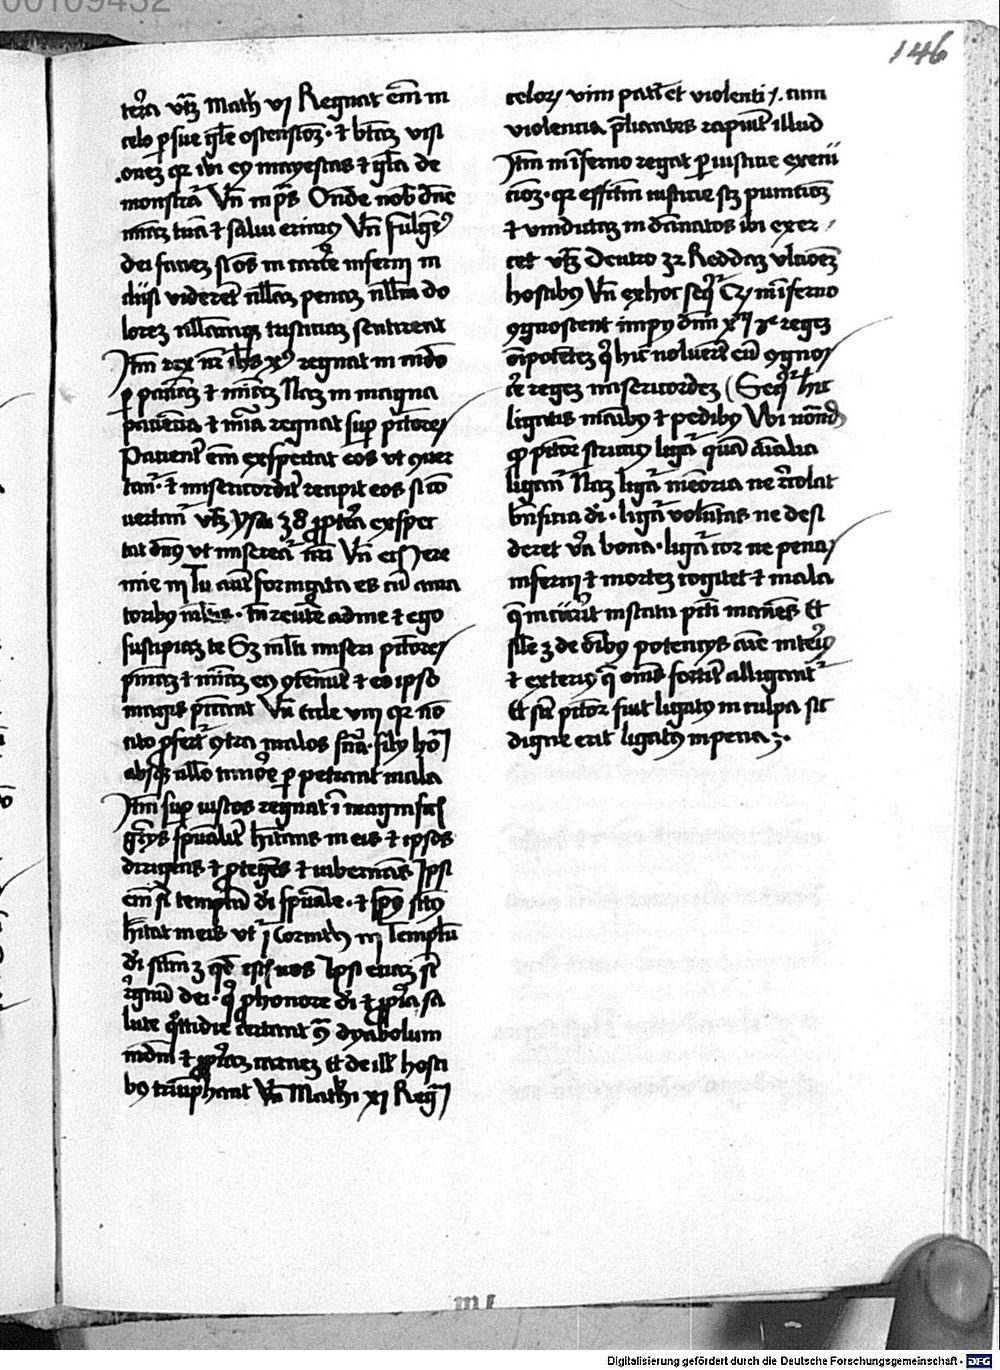 146
tera vtz Math vj Regnat em in
celo p sue gle ostensioz · et btaz visi
onez qr ibi ey mayestas et gla de
monstra Vn in ps Onde nob dne
miaz tua et salui erimus Vn fulge
dei faciez si os in carce inferni in
clusi videret nllaz penaz nllm do
lorez nllamqz tristiciaz sentirent
Jtm rex nr ihs xps regnat in mdo
p paciaz et miaz Naz in magna
paciencia et mia regnat sup pctores
Pacient em exspectat eos vt quer
tant · et misericordit recipit eos si co
uertant vtz ysa 30 propterea exspec
tat dns vt miserea nri Vn et Jere
mie iij Tu aut fornicata es cu ama
toribus mltis · tn reutere ad me et ego
suscipiaz te Sz mlti miseri pctores
pniaz et miaz ey contemnut et eo ipso
magis peccant Vn ccle viij qr no
cito profert contra malos snia · filij hoi
absqz vllo timore perpetrant mala
Jtm sup iustos regnat i magnificis
gracijs spualit hitans in eis et ipsos
dirigens et protegens et gubernans Jpsi
em st templu di spuale · et spus sctus
hitat in eis vt j Corinth iij Templu
di sctm z qd estis vos Jpsi eciaz st
regnu dei · q p honore di et propria sa
lute quottidie certant contra dyabolum
mdm et propriaz carnez Et de ill hosti
bus triuphant Vn Mathi xj Regnj
celorz vim patit et violenti / · cum
violencia pliantes rapiut illud
Jtm in inferno regnat p iusticie execu
cioz · qr effectm iusticie scz punicioz
et vindictaz in damnatos ibi exer /
cet vtz Deutro 32 Reddaz vlcioez
hostibus Vn ex hoc seqr in inferno
cognoscent impij dnm xpm regez
oipotentez q hic noluerut eu cogno
re regez misericordez (Seqr hic
ligatis manibus et pedibus Vbi notand
q pctor strictius ligat qua aialia
ligant Naz ligat memoria ne recolat
bnficia di · ligat voluntas ne desi
deret vera bona · ligat cor ne penas
inferni et mortez cogitet et mala
q incurrit in statu pcti manes Et
sile z de oibus potencijs aie interius
et exterius q oms fortit alligant
Et sicut pctor fuit ligatus in culpa sic
digne erit ligatus in pena z ·
Digitalisierung gefördert durch die Deutsche Forschungsgemeinschaft · DFG